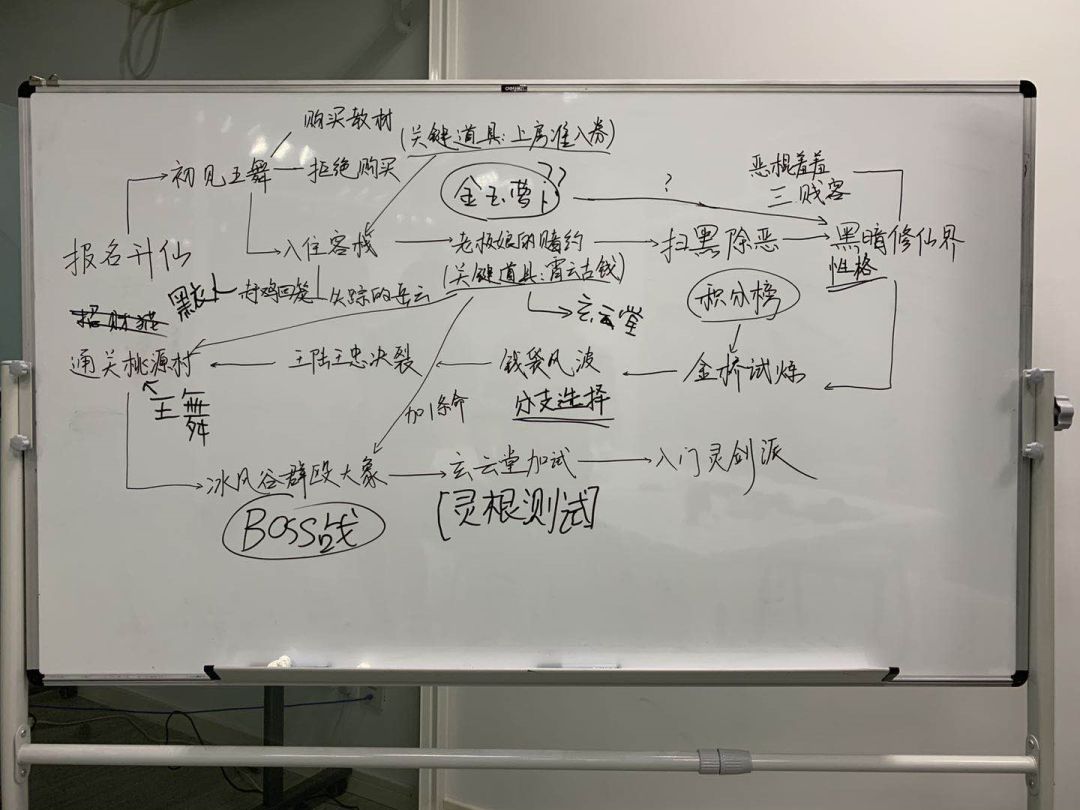 deli
购买教材
(关键道具:上房准入券)
初见王舞
拒绝购买
恶棍羞羞
三贱客
金玉蕾?
??
?
报名升仙
入住客栈
老板娘的赌约
扫黑除恶
黑暗修仙界
性格
黑衣人
失踪的岳云
(关键道具:霄云古钱)
积分榜
玄云堂
招财猫
通关桃源村
王陆王忠决裂
钱袋风波
金桥试炼
王舞
加1条命
分支选择
冰风谷群殴大象
玄云堂加试
入门灵剑派
BOSS战
[灵根测试]